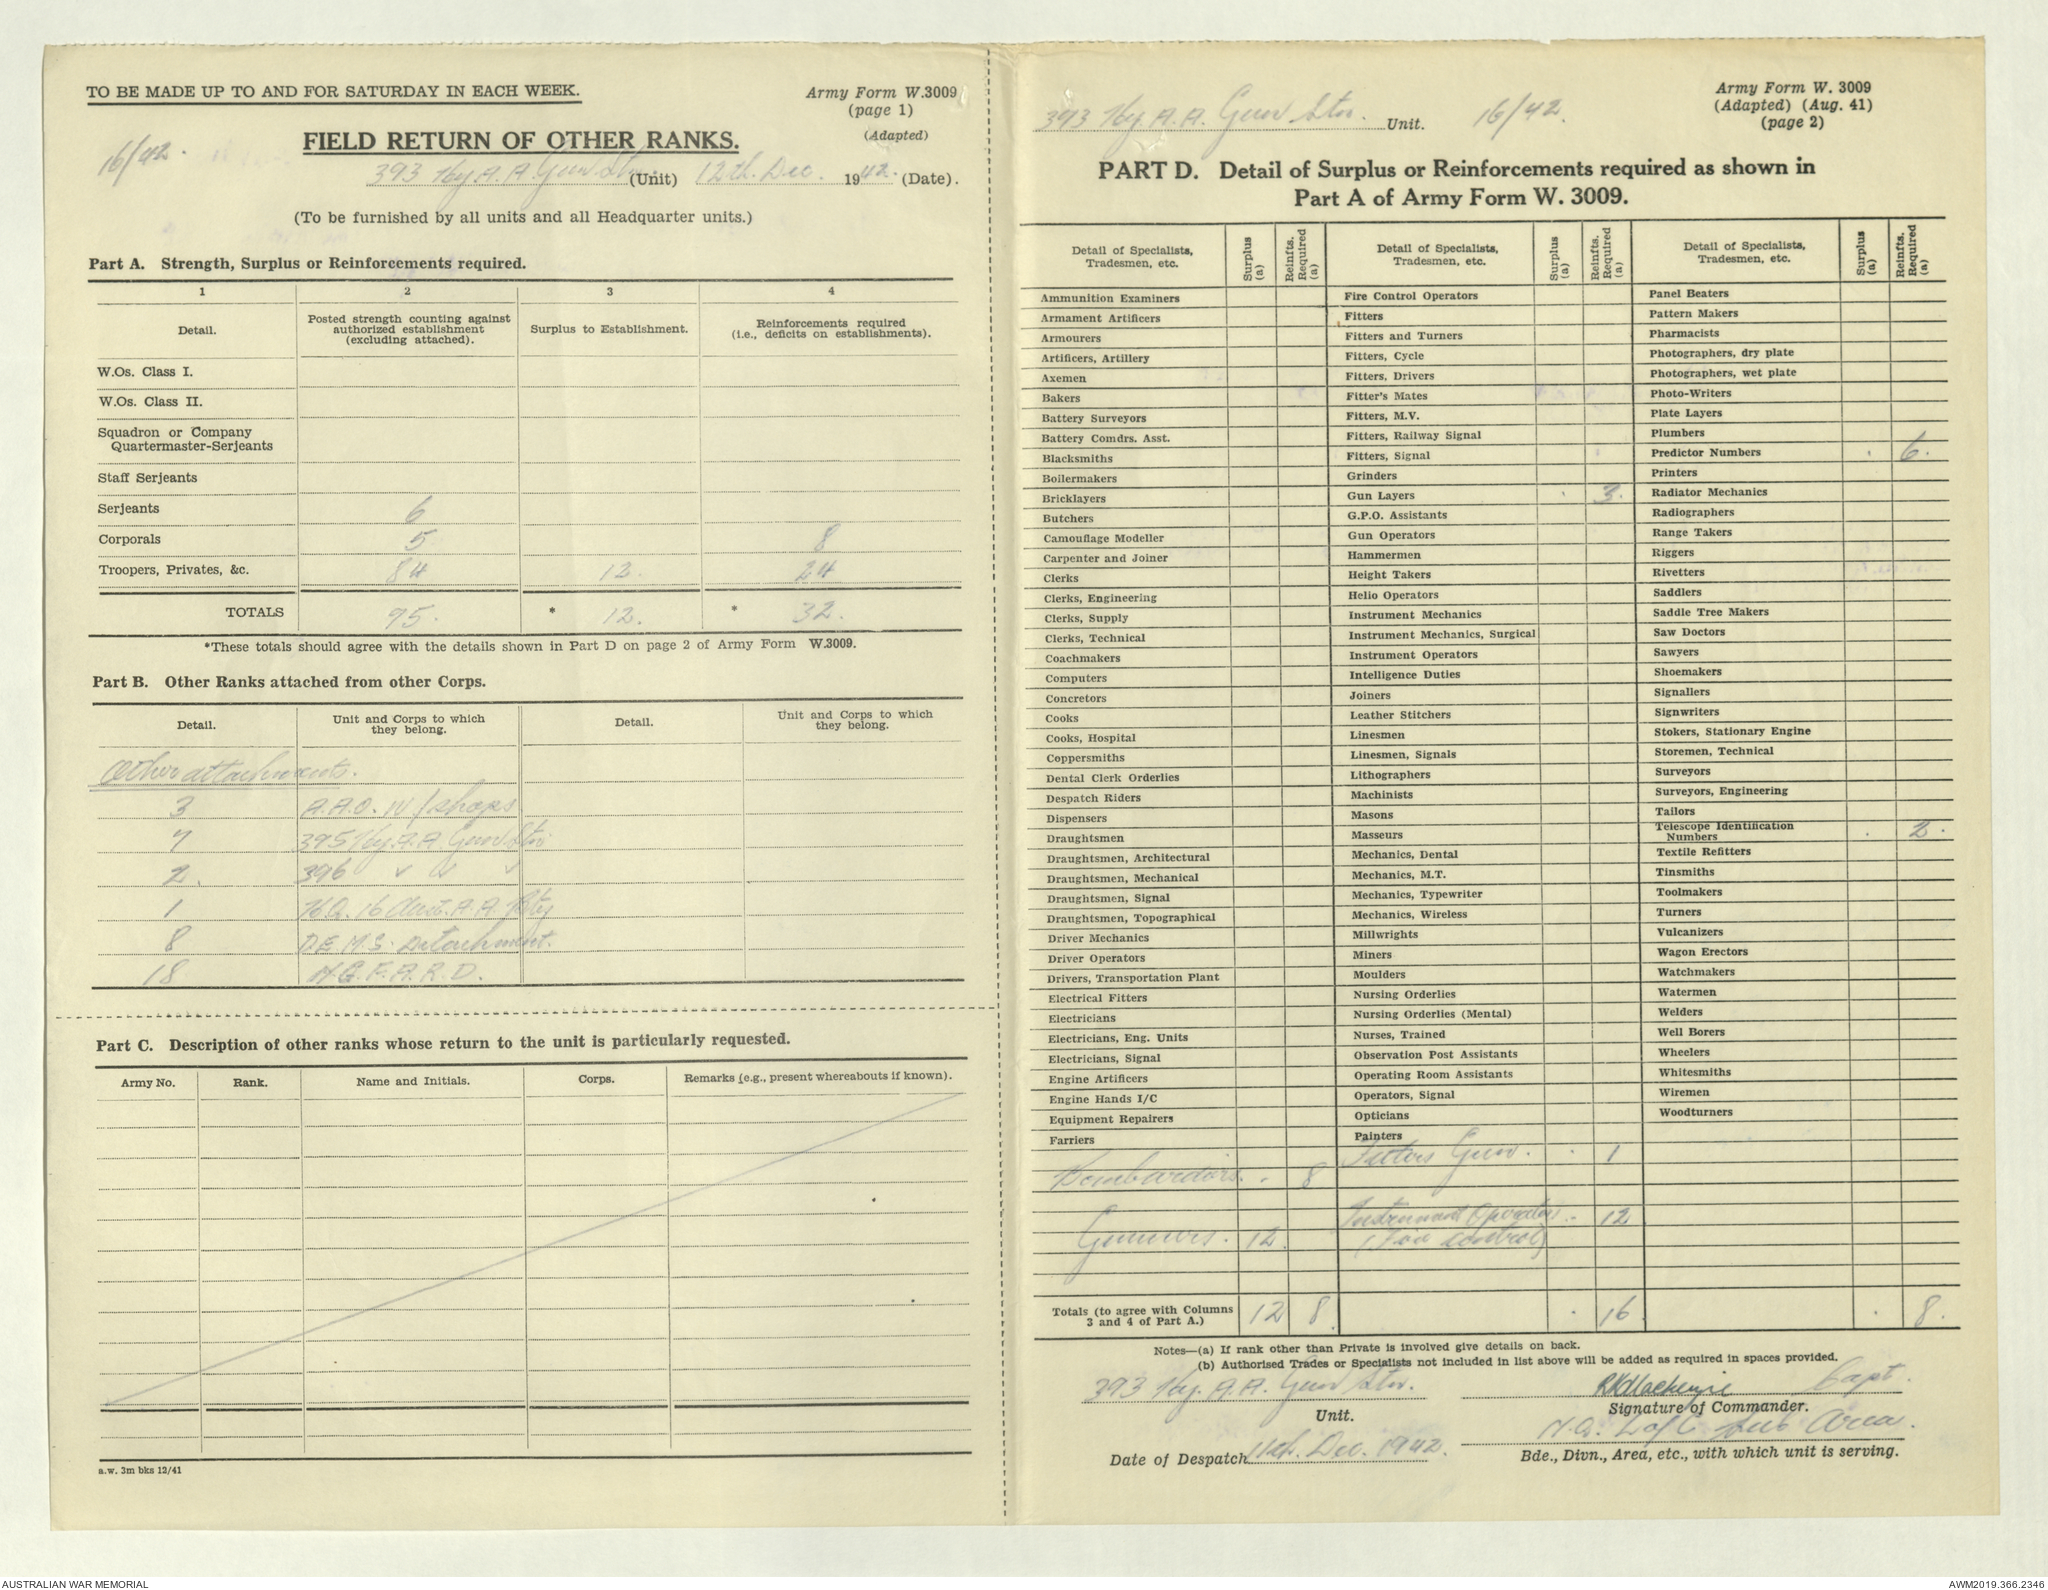 TO BE MADE UP TO AND FOR SATURDAY IN EACH WEEK.
Army Form W.3009
(page 1)
(Adapted)
16/42.
FIELD RETURN OF OTHER RANKS.
393 Hy A. A. Gun Stn. (Unit) 12th. Dec. 1942. (Date).
(To be furnished by all units and all Headquarter units.)
Part A. Strength, Surplus or Reinforcements required.
1 2 3 4
Detail.
Posted strength counting against authorized establishment (excluding attached).
Surplus to Establishment.
Reinforcements required (i.e., deficits on establishments).
W.Os. Class I.
W.Os. Class II.
Squadron or Company
Quartermaster-Serjeants
Staff Serjeants
Serjeants 6
Corporals 5 8
Troopers, Privates, &c. 84 12. 24
TOTALS 95. * 12. * 32.
*These totals should agree with the details shown in Part D on page 2 of Army Form W.3009.
Part B. Other Ranks attached from other Corps.
Detail. Unit and Corps to which they belong. Detail. Unit and Corps to which they belong.
Other attachments.
3 A.A.O. W/shops
7 395 Hy. A.A. Gun Stn
2. 396 " " "
1 H.Q. 16 Aust. A.A. Bty
8 D.E.M.S. Detachment.
18 N.G.F.A.R.D.
Part C. Description of other ranks whose return to the unit is particularly requested.
Army No. Rank. Name and Initials. Corps. Remarks (e.g., present whereabouts if known).
a.w. 3m bks 12/41
393 Hy. A. A. Gun Stn. Unit. 16/42.
Army Form W. 3009
(Adapted) (Aug. 41)
(page 2)
PART D. Detail of Surplus or Reinforcements required as shown in
Part A of Army Form W. 3009.
Detail of Specialists, Tradesmen, etc. Surplus (a) Reinfts. Required (a)
Ammunition Examiners
Armament Artificers
Armourers
Artificers, Artillery
Axemen
Bakers
Battery Surveyors
Battery Comdrs. Asst.
Blacksmiths
Boilermakers
Bricklayers
Butchers
Camouflage Modeller
Carpenter and Joiner
Clerks
Clerks, Engineering
Clerks, Supply
Clerks, Technical
Coachmakers
Computers
Concretors
Cooks
Cooks, Hospital
Coppersmiths
Dental Clerk Orderlies
Despatch Riders
Dispensers
Draughtsmen
Draughtsmen, Architectural
Draughtsmen, Mechanical
Draughtsmen, Signal
Draughtsmen, Topographical
Driver Mechanics
Driver Operators
Drivers, Transportation Plant
Electrical Fitters
Electricians
Electricians, Eng. Units
Electricians, Signal
Engine Artificers
Engine Hands I/C
Equipment Repairers
Farriers
Bombardiers. . 8
Gunners. 12
Detail of Specialists, Tradesmen, etc. Surplus (a) Reinfts. Required (a)
Fire Control Operators
Fitters
Fitters and Turners
Fitters, Cycle
Fitters, Drivers
Fitter's Mates
Fitters, M.V.
Fitters, Railway Signal
Fitters, Signal
Grinders
Gun Layers . 3.
G.P.O. Assistants
Gun Operators
Hammermen
Height Takers
Helio Operators
Instrument Mechanics
Instrument Mechanics, Surgical
Instrument Operators
Intelligence Duties
Joiners
Leather Stitchers
Linesmen
Linesmen, Signals
Lithographers
Machinists
Masons
Masseurs
Mechanics, Dental
Mechanics, M.T.
Mechanics, Typewriter
Mechanics, Wireless
Millwrights
Miners
Moulders
Nursing Orderlies
Nursing Orderlies (Mental)
Nurses, Trained
Observation Post Assistants
Operating Room Assistants
Operators, Signal
Opticians
Painters
Fitters Gun. . 1
Instrument Operators . 12
(Fire control)
Detail of Specialists, Tradesmen, etc. Surplus (a) Reinfts. Required (a)
Panel Beaters
Pattern Makers
Pharmacists
Photographers, dry plate
Photographers, wet plate
Photo-Writers
Plate Layers
Plumbers
Predictor Numbers . 6.
Printers
Radiator Mechanics
Radiographers
Range Takers
Riggers
Rivetters
Saddlers
Saddle Tree Makers
Saw Doctors
Sawyers
Shoemakers
Signallers
Signwriters
Stokers, Stationary Engine
Storemen, Technical
Surveyors
Surveyors, Engineering
Tailors
Telescope Identification
Numbers . 2.
Textile Refitters
Tinsmiths
Toolmakers
Turners
Vulcanizers
Wagon Erectors
Watchmakers
Watermen
Welders
Well Borers
Wheelers
Whitesmiths
Wiremen
Woodturners
Totals (to agree with Columns 3 and 4 of Part A.) 12 8. . 16 . 8.
Notes—(a) If rank other than Private is involved give details on back.
(b) Authorised Trades or Specialists not included in list above will be added as required in spaces provided.
393 Hy. A.A. Gun Stn.
Unit.
Date of Despatch 11th. Dec. 1942.
RKMackenzie Capt.
Signature of Commander.
H.Q. L of C Sub Area.
Bde., Divn., Area, etc., with which unit is serving.
AUSTRALIAN WAR MEMORIAL
AWM2019.366.2346